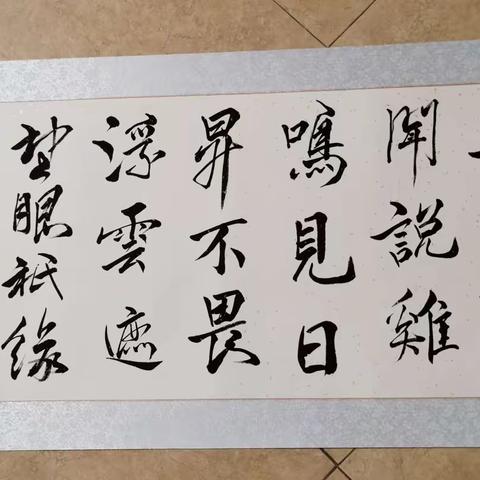 聞說雞
鳴見日
昇不畏
浮雲遮
望眼祇緣